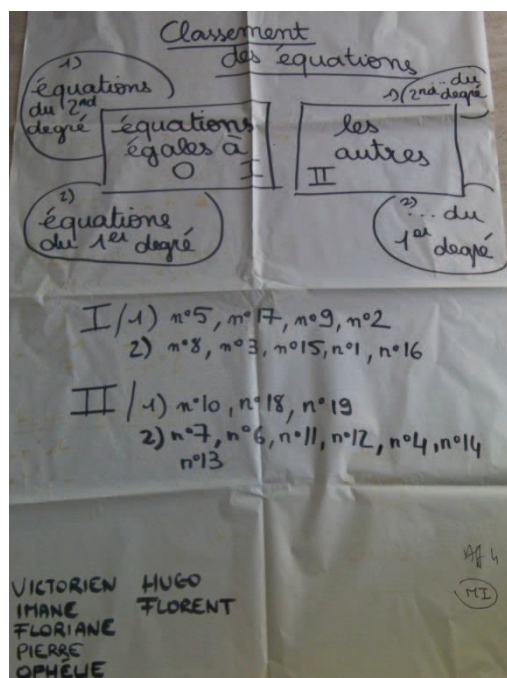 Classement
des équations
1)
équations
du 2nd
degré
équations
égales à
0 I
les
autres
II
1) ... du
2nd degré
2)
équations
du 1er degré
2)
... du
1er
degré
I/1) n°5, n°17, n°9, n°2
2) n°8, n°3, n°15, n°1, n°16
II/1) n°10, n°18, n°19
2) n°7, n°6, n°11, n°12, n°4, n°14
n°13
VICTORIEN HUGO
IMANE FLORENT
FLORIANE
PIERRE
OPHÉLIE
Aff 4
MI